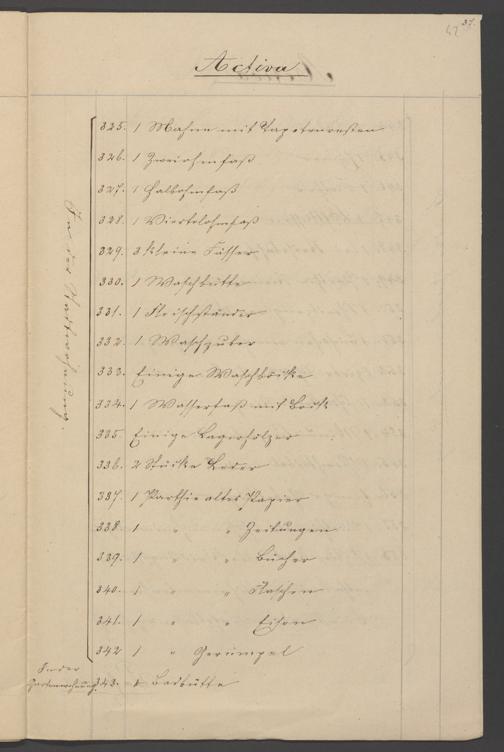 37.
42
Activa
325. 1 Mahne mit Tapetenresten
326. 1 Zweiohmfaß
327. 1 Halbohmfaß
328. 1 Viertelohmfaß
329. 3 kleine Fässer
330. 1 Waschbütte
331. 1 Fleischständer
332. 1 Waschzuber
333. Einige Waschböcke
334. 1 Wasserfaß mit Bock
335. Einige Lagerhölzer
336. 2 Stücke Leder
337. 1 Parthie altes Papier
338. 1 " " Zeitungen
339. 1 " " Bücher
340. 1 " " Flaschen
341. 1 " " Eisen
342 1 " Gerümpel
In der
Gartenwohnung 343. 1 Badbütte
In der